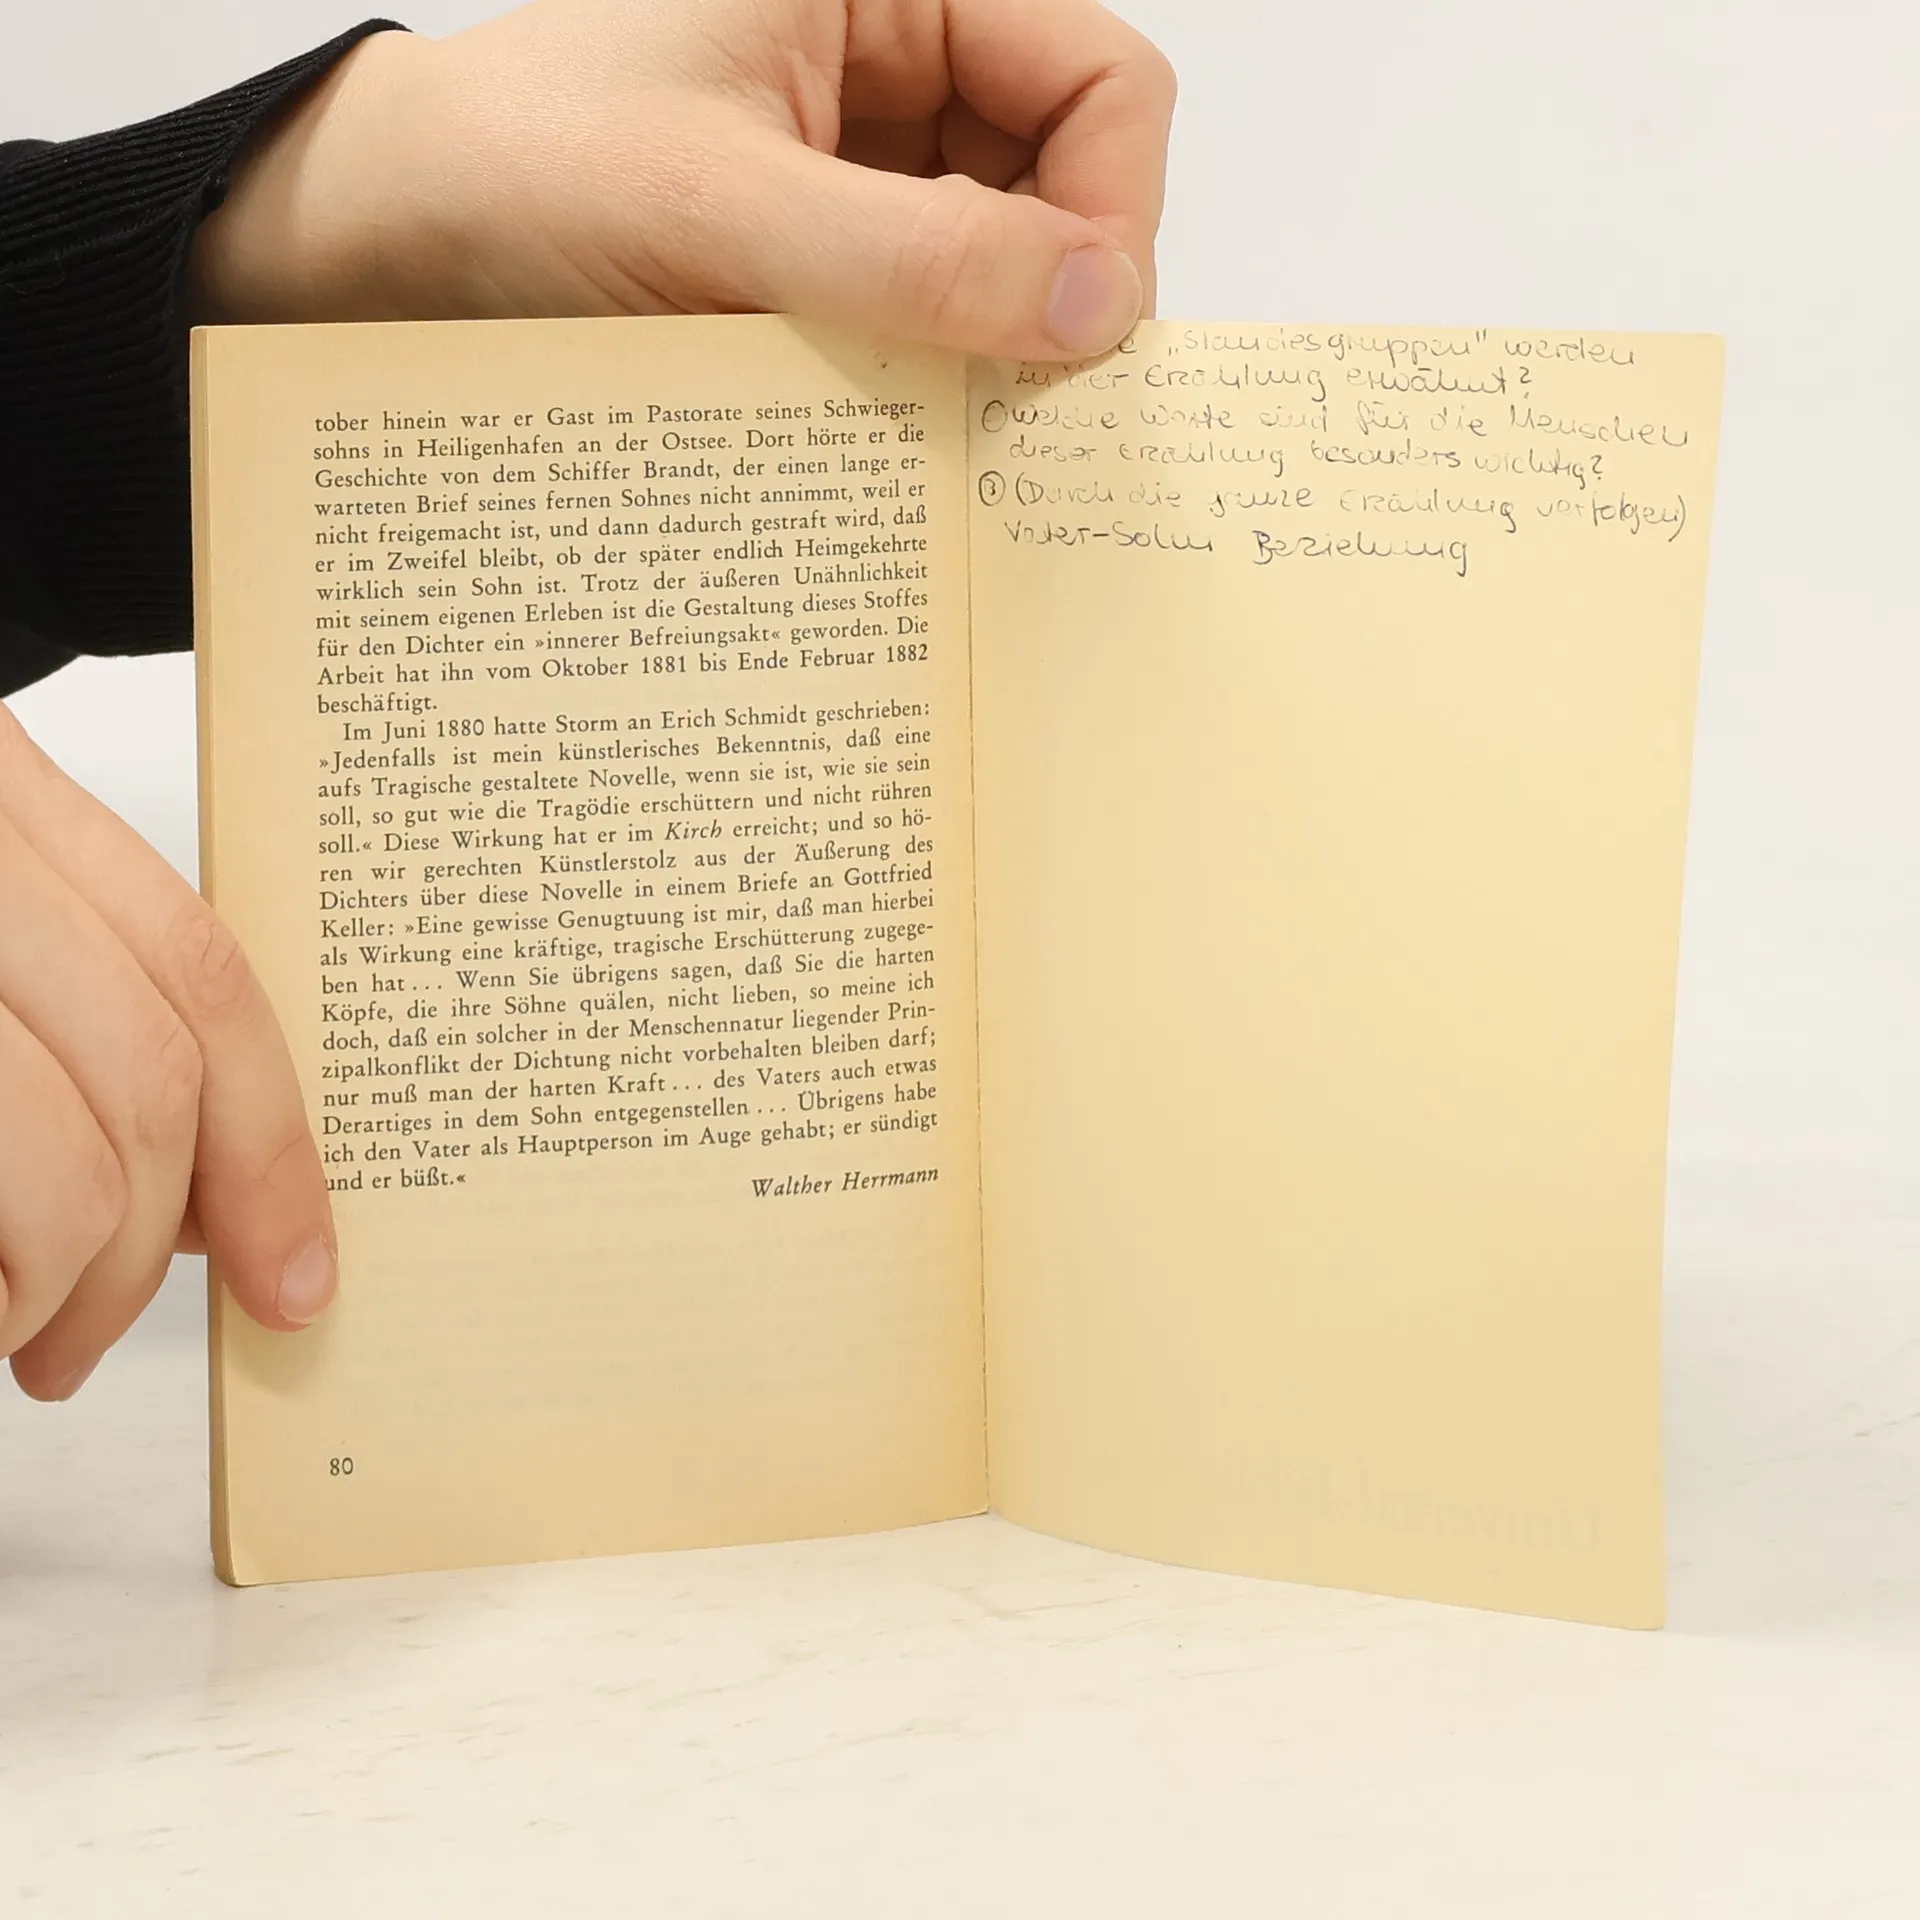 tober hinein war er Gast im Pastorate seines Schwieger-
sohns in Heiligenhafen an der Ostsee. Dort hörte er die
Geschichte von dem Schiffer Brandt, der einen lange er-
warteten Brief seines fernen Sohnes nicht annimmt, weil er
nicht freigemacht ist, und dann dadurch gestraft wird, daß
er im Zweifel bleibt, ob der später endlich Heimgekehrte
wirklich sein Sohn ist. Trotz der äußeren Unähnlichkeit
mit seinem eigenen Erleben ist die Gestaltung dieses Stoffes
für den Dichter ein »innerer Befreiungsakt« geworden. Die
Arbeit hat ihn vom Oktober 1881 bis Ende Februar 1882
beschäftigt.
Im Juni 1880 hatte Storm an Erich Schmidt geschrieben:
»Jedenfalls ist mein künstlerisches Bekenntnis, daß eine
aufs Tragische gestaltete Novelle, wenn sie ist, wie sie sein
soll, so gut wie die Tragödie erschüttern und nicht rühren
soll.« Diese Wirkung hat er im Kirch erreicht; und so hö-
ren wir gerechten Künstlerstolz aus der Äußerung des
Dichters über diese Novelle in einem Briefe an Gottfried
Keller: »Eine gewisse Genugtuung ist mir, daß man hierbei
als Wirkung eine kräftige, tragische Erschütterung zugege-
ben hat... Wenn Sie übrigens sagen, daß Sie die harten
Köpfe, die ihre Söhne quälen, nicht lieben, so meine ich
doch, daß ein solcher in der Menschennatur liegender Prin-
zipalkonflikt der Dichtung nicht vorbehalten bleiben darf;
nur muß man der harten Kraft... des Vaters auch etwas
Derartiges in dem Sohn entgegenstellen... Übrigens habe
ich den Vater als Hauptperson im Auge gehabt; er sündigt
und er büßt.«
Walther Herrmann
80
„Standesgruppen" werden
in der Erzählung erwähnt?
Welche Worte sind für die Menschen
dieser Erzählung besonders wichtig?
③ (Durch die ganze Erzählung verfolgen)
Vater-Sohn Beziehung